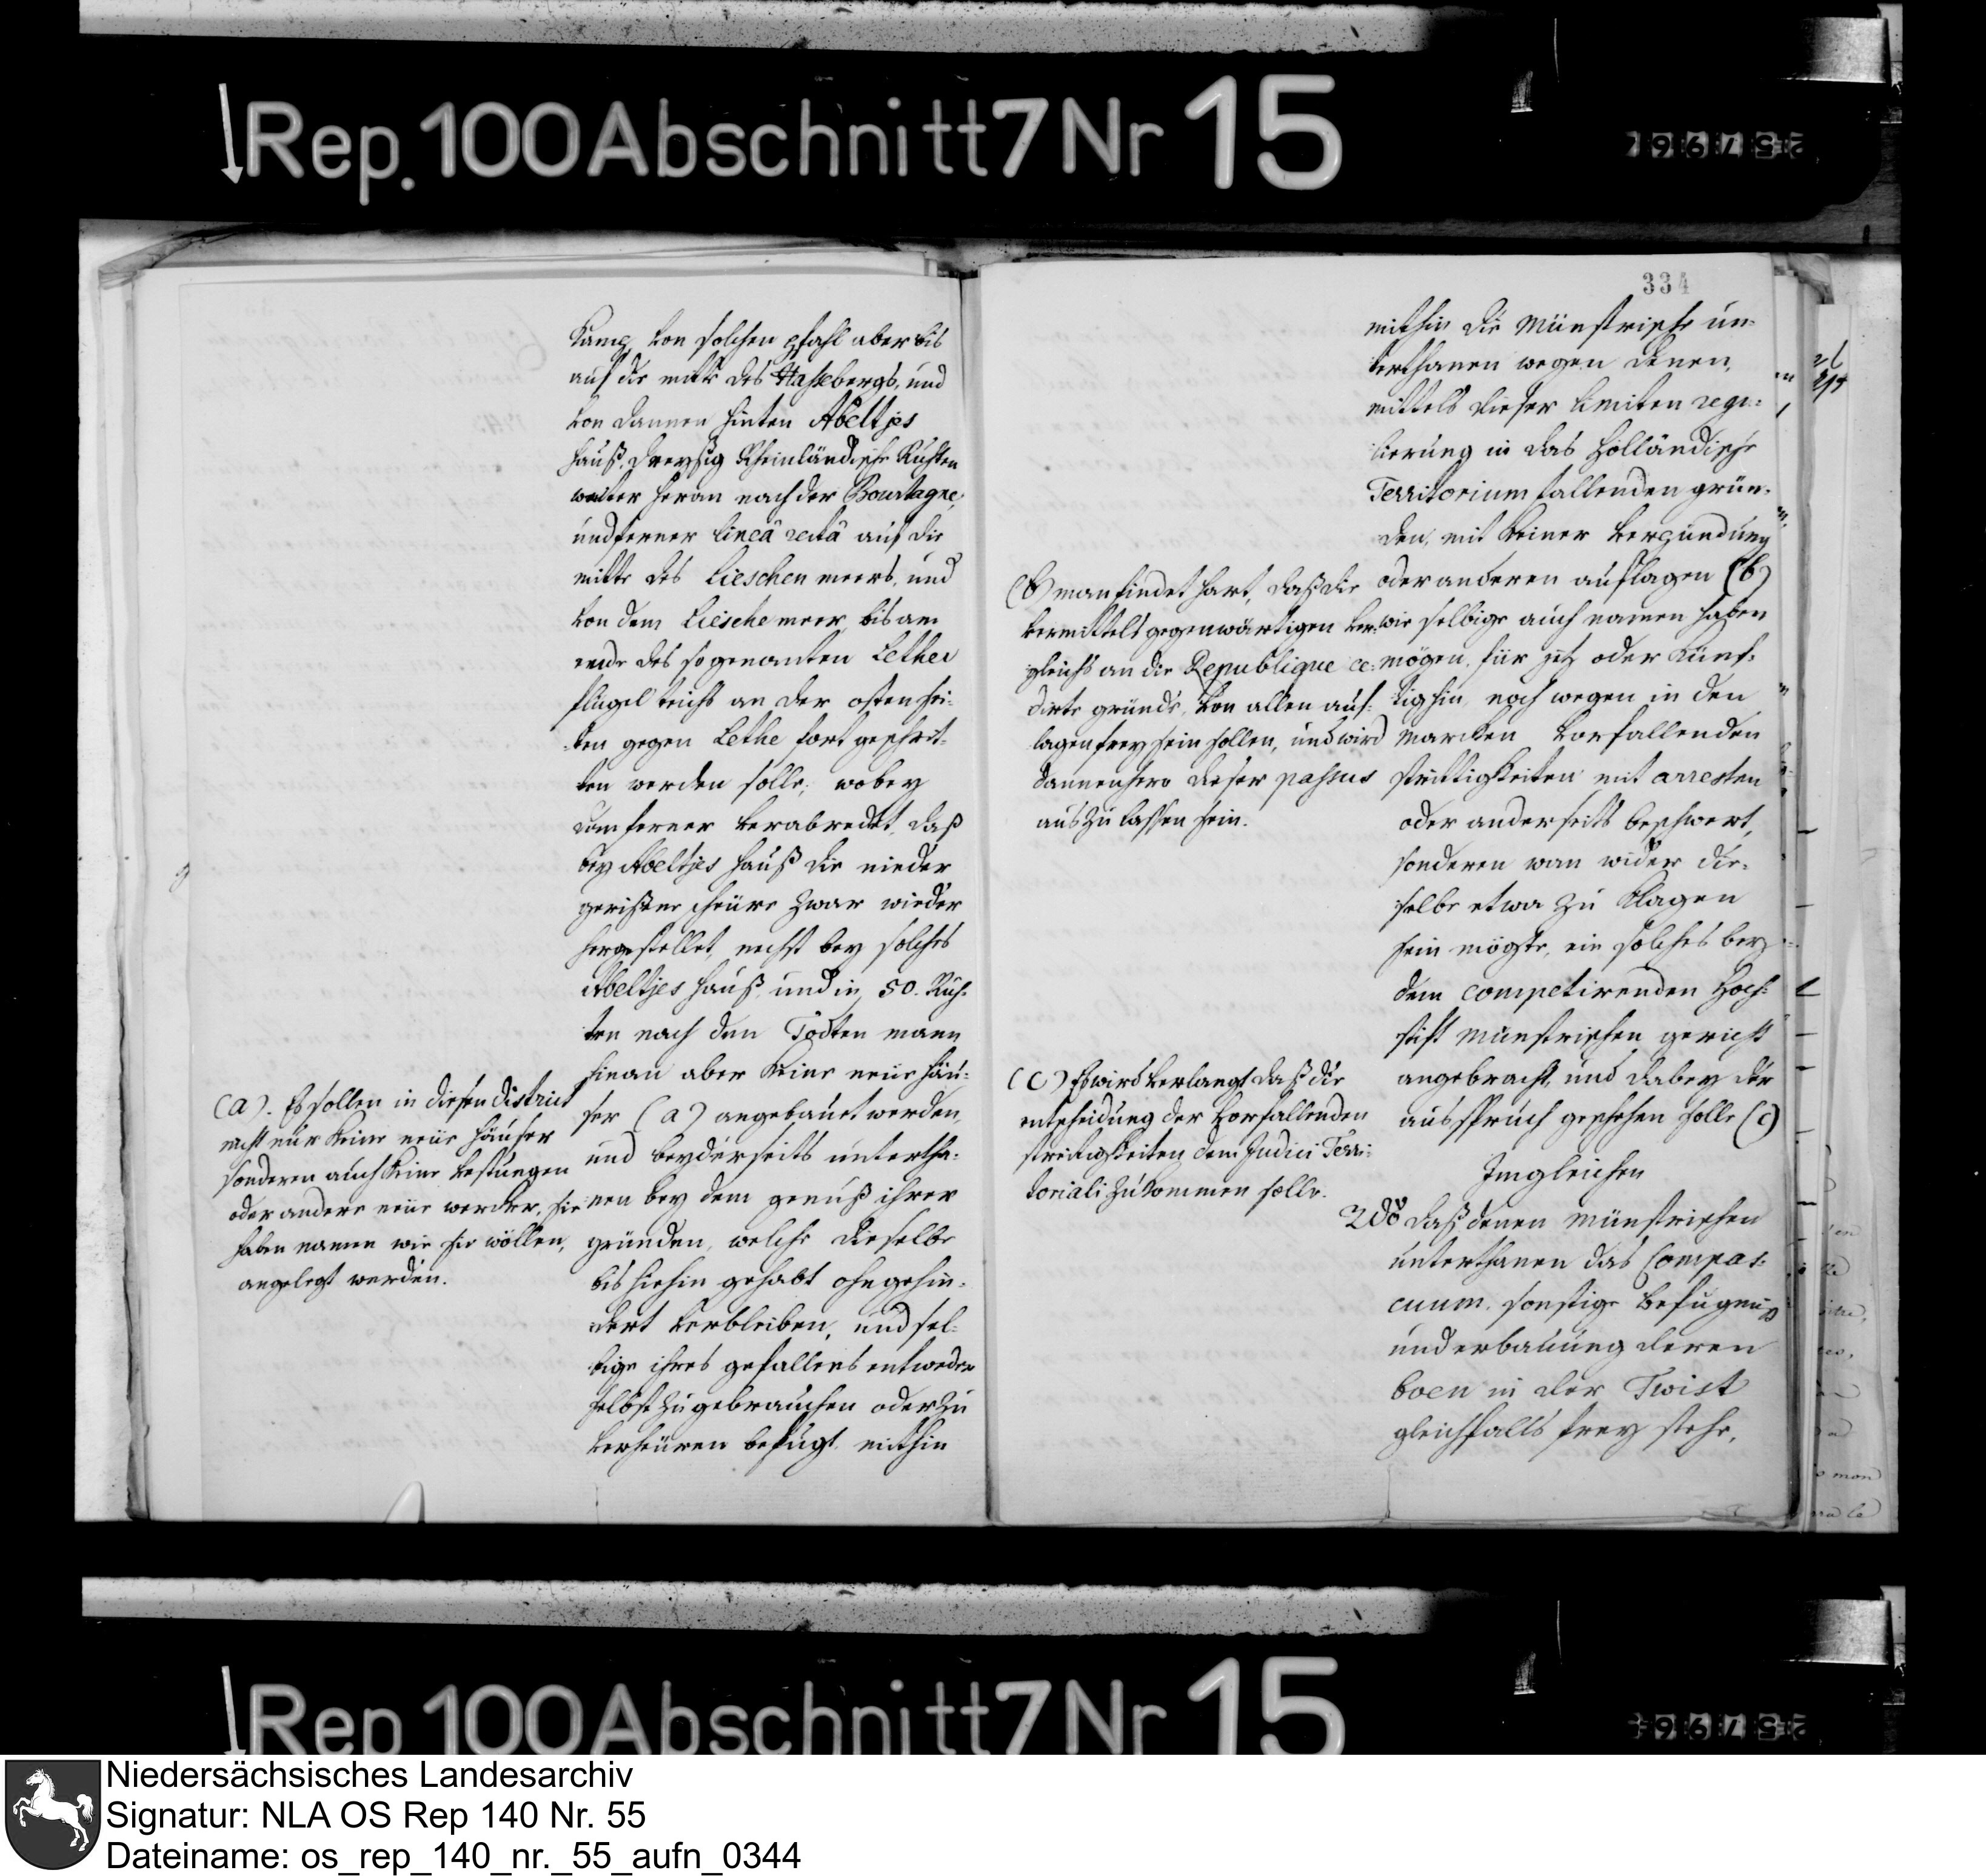 Rep. 100 Abschnitt 7 Nr 15
Kamp, von solchen pfahl aber bis
auf die mitte des Hassebergs, und
von dannen hinten Abeltjes
hauß, dreyßig Rheinländische Ruhten
weiter heran nach der Bourtagne,
und ferner lineâ rectâ auf die
mitte des Lieschen meers, und
von dem Liesche meer, bis am
ende des so genanten Lether
flügel teichs an der osten sei-
ten gegen Lethe fort geschrit-
ten werden solle, wobey
dan ferner verabredet, daß
bey Abeltjes hauß die nieder
gerißene scheüre zwar wieder
hergestellet, nechst bey solches
Abeltjes hauß, und in 50. Ruh-
ten nach den Todten mann
hinan aber keine neüe häu-
ser (a) angebauet werden,
und beyderseits untertha-
nen bey dem genuß ihrer
gründen, welche dieselbe
bis hiehin gehabt ohngehin-
dert verbleiben, und sel-
bige ihres gefallens entweder
selbst zu gebrauchen oder zu
verheüren befugt, mithin
(a). Es sollen in diesen district
nicht nur keine neüe häuser
sonderen auch keine vestungen
oder andere neüe wercker, sie
haben namen wie sie wöllen,
angelegt werden.
334
mithin die Münstrische un-
terthanen wegen denen,
mittels dieser limiten regu-
lierung in das Holländische
Territorium fallenden grün-
den, mit keiner verpundung
oder anderen auflagen (b)
wie selbige auch namen haben
mögen, für jetz oder künf-
tighin, noch wegen in den
Marcken vorfallenden
strittigkeiten mit arresten
oder anderseits beschwert,
sonderen wan wider die-
selbe etwa zu klagen
sein mögte, ein solches bey
dem competirenden Hoch-
stift münstrischen gericht
angebracht, und dabey der
ausspruch geschehen solle (c)
Imgleichen
2do daß denen münstrischen
unterthanen das Compas-
cuum, sonstige befugnus
und erbauung deren
boen in der Twist
gleichfalls frey stehe,
(b) man findet hart, daß die
vermittels gegenwärtigen ver-
gleichs an die Republique ce-
dirte gründe, von allen auf-
lagen frey sein sollen, und wird
dannenhero dieser passus
aus zu lassen sein.
(c) Es wird verlangt daß die
entscheidung der vorfallenden
streitigkeiten dem Judici Terri-
toriali zukommen solle.
Rep 100 Abschnitt 7 Nr 15
Niedersächsisches Landesarchiv
Signatur: NLA OS Rep 140 Nr. 55
Dateiname: os_rep_140_nr._55_aufn_0344